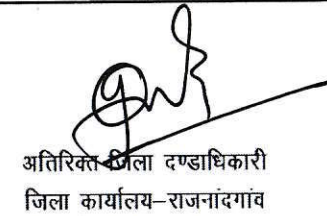 अतिरिक्त जिला दण्डाधिकारी
जिला कार्यालय–राजनांदगांव